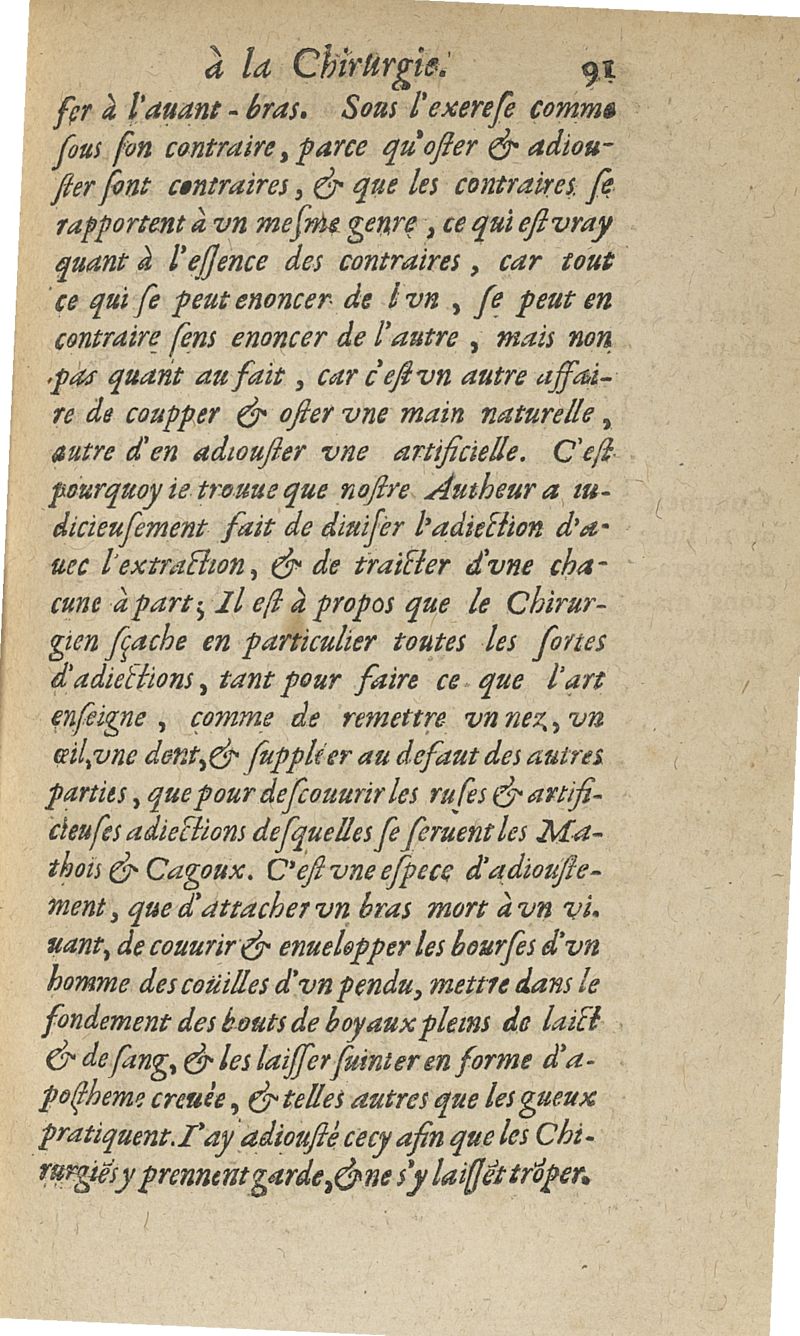 à la Chirurgie. 91
ſer à l'auant-bras. Sous l'exereſe comme
ſous ſon contraire, parce qu'oſter & adiou-
ſter ſont contraires, & que les contraires ſe
rapportent à vn meſme genre, ce qui eſt vray
quant à l'eſſence des contraires, car tout
ce qui ſe peut enoncer de l vn, ſe peut en
contraire ſens enoncer de l'autre, mais non
pas quant au fait, car c'eſt vn autre affai-
re de coupper & oſter vne main naturelle,
autre d'en adiouſter vne artificielle. C'eſt
pourquoy ie trouue que noſtre Autheur a iu-
dicieuſement fait de diuiſer l'adiection d'a-
uec l'extraction, & de traicter d'vne cha-
cune à part; Il eſt à propos que le Chirur-
gien ſçache en particulier toutes les ſortes
d'adiections, tant pour faire ce que l'art
enſeigne, comme de remettre vn nez, vn
œil, vne dent, & ſuppléer au defaut des autres
parties, que pour deſcouurir les ruſes & artifi-
cieuſes adiections deſquelles ſe ſeruent les Ma-
thois & Cagoux. C'eſt vne eſpece d'adiouſte-
ment, que d'attacher vn bras mort à vn vi-
uant, de couurir & enuelopper les bourſes d'vn
homme des coüilles d'vn pendu, mettre dans le
fondement des bouts de boyaux pleins de laict
& de ſang, & les laiſſer ſuinter en forme d'a-
poſtheme creuée, & telles autres que les gueux
pratiquent. I'ay adiouſté cecy afin que les Chi-
rurgiēs y prennent garde, & ne s'y laiſſēt trōper.